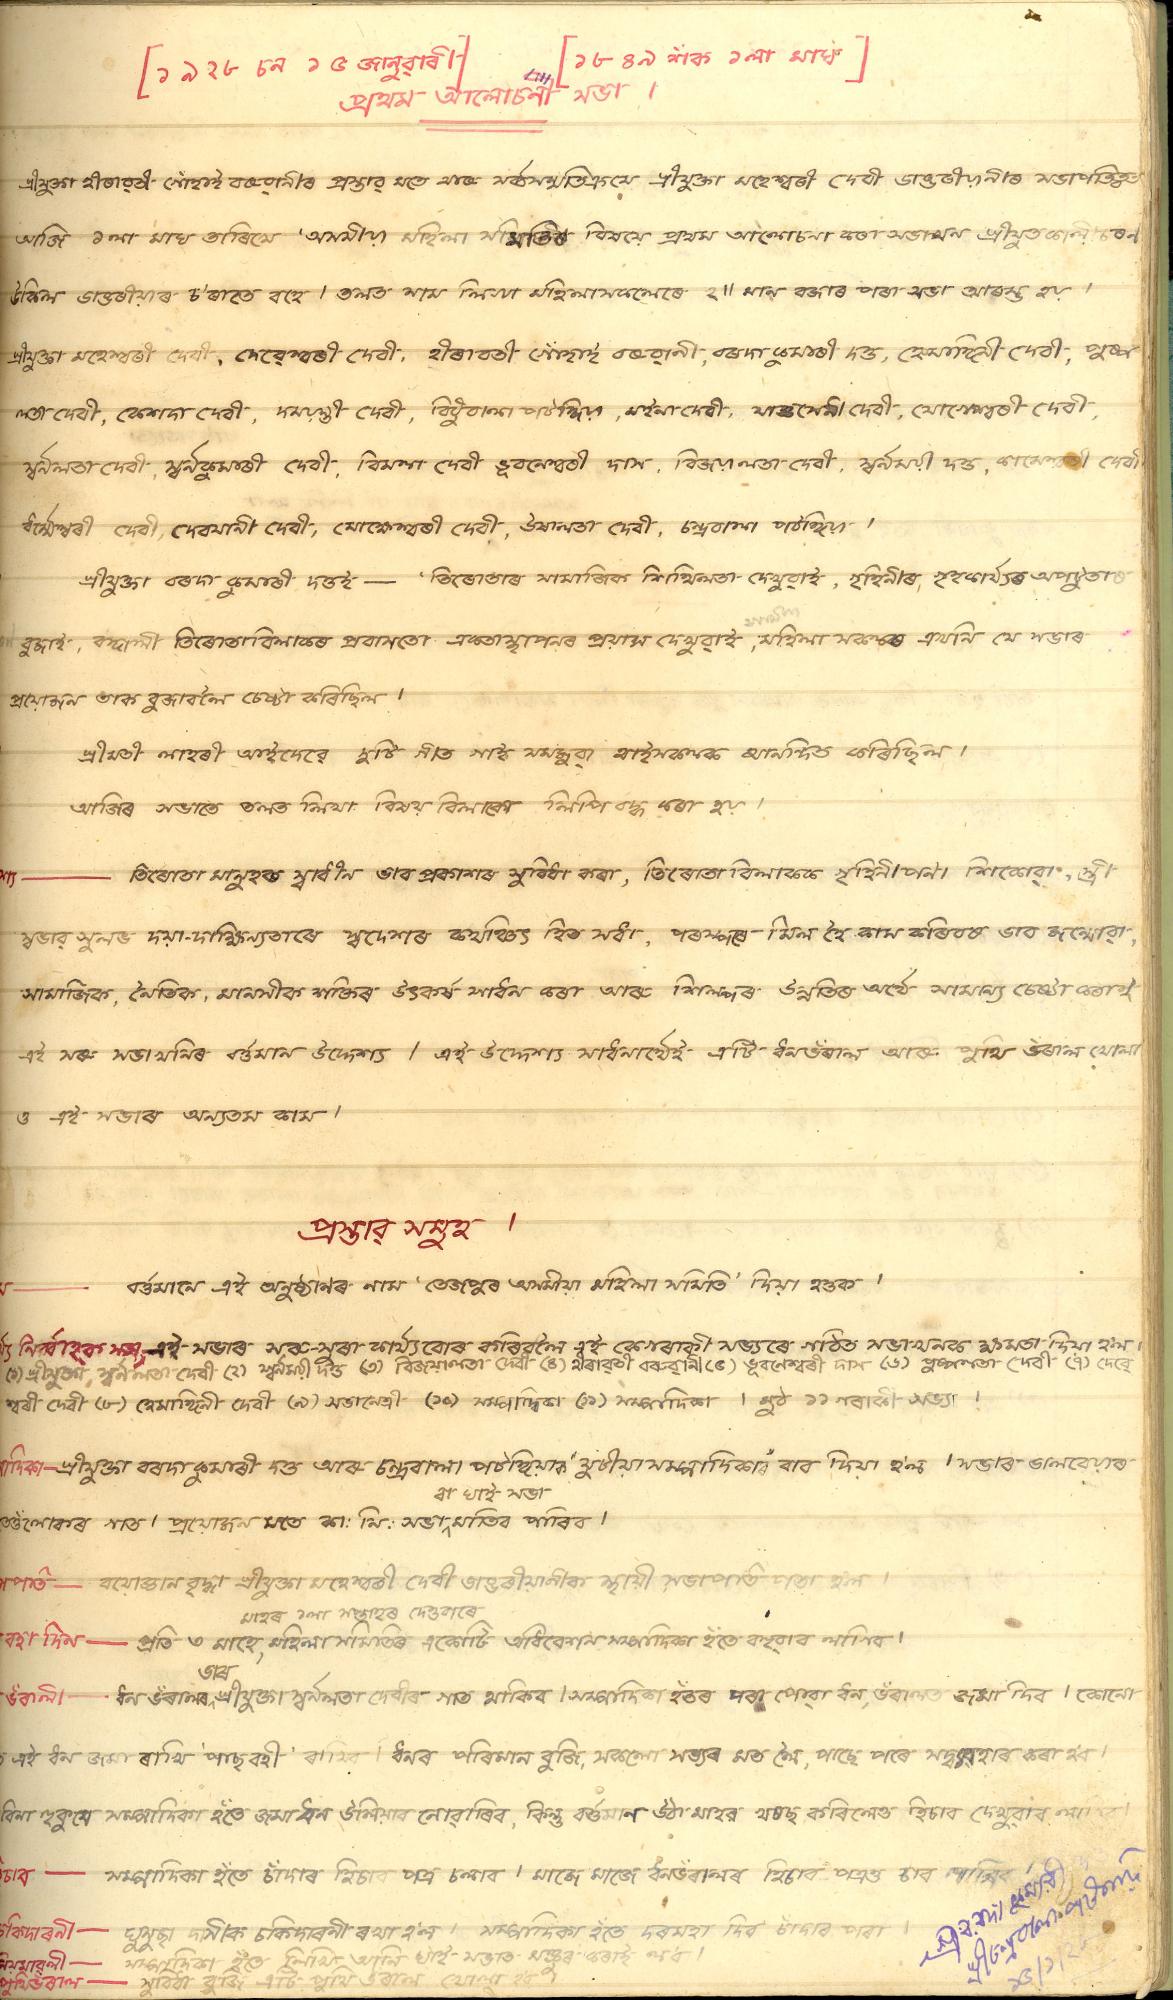 [১৯২৮ চন ১৫ জানুৱাৰী] [১৮৪৯ শঁক ১লা মাঘ]
প্ৰথম আলোচনী সভা ।
শ্ৰীযুক্তা হীৰাৱতী গোঁহাই বৰুৱানীৰ প্ৰস্তাৱ মতে আৰু সৰ্ব্বসন্মতিক্ৰমে শ্ৰীযুক্তা মহেশ্বৰী দেবী ডাক্তৰীয়ানীৰ সভাপতিত্বত
আজি ১লা মাঘ তাৰিখে 'অসমীয়া মহিলা সমিতিৰ বিষয়ে প্ৰথম আলোচনা কৰা সভাখন শ্ৰীযুত কালীচৰন
উকিল ডাক্তৰীয়াৰ চ'ৰাতে বহে । তলত নাম লিখা মহিলাসকলেৰে ২॥ মান বজাৰ পৰা সভা আৰম্ভ হয় ।
শ্ৰীযুক্তা মহেশ্বৰী দেবী, দেৱেশ্বৰী দেবী, হীৰাবতী গোঁহাই বৰুৱানী, বৰদা কুমাৰী দত্ত, হেমাঙ্গিনী দেবী, পুষ্প
লতা দেবী, কেশদা দেবী, দময়ন্তী দেবী, বিধুবালা পাটঙ্গিয়া, মইনা দেবী, দেবী, যোগেশ্বৰী দেবী,
স্বৰ্নলতা দেবী, স্বৰ্নকুমাৰী দেবী, বিমলা দেবী ভূবনেশ্বৰী দাস, বিজয়ালতা দেবী, স্বৰ্নময়ী দত্ত, কামেশ্বৰী দেবী
ধৰ্ম্মেশ্বৰী দেবী, দেবযানী দেবী, মোক্ষেশ্বৰী দেবী, ঊষালতা দেবী, চন্দ্ৰবালা পাটঙ্গিয়া ।
শ্ৰীযুক্তা বৰদা কুমাৰী দত্তই — 'তিৰোতাৰ সামাজিক শিথিলতা দেখুৱাই, গৃহিনীৰ, গৃহকাৰ্য্যৰ অপটুতাৰ
বুজাই, বঙ্গালী তিৰোতাবিলাকৰ প্ৰবাসতো একতা স্থাপনৰ প্ৰয়াস দেখুৱাই, মহিলা সকলৰ এখনি যে সভাৰ
প্ৰয়োজন তাক বুজাবলৈ চেষ্টা কৰিছিল ।
শ্ৰীমতী লাহৰী আইদেৱে দুটি গীত গাই সমজুৱা ৰাইসকলক আনন্দিত কৰিছিল ।
আজিৰ সভাতে তলত লিখা বিষয় বিলাকো লিপি বদ্ধ কৰা হয় ।
— তিৰোতা মানুহৰ স্বাধীন ভাব প্ৰকাশৰ সুবিধা কৰা, তিৰোতা বিলাকক গৃহিনীপনা শিকোৱা, স্ত্ৰী
স্বভাৱ সুলভ দয়া-দাক্ষিন্যতাৰে স্বদেশৰ কথঞ্চিৎ হিত সধা, পৰস্পৰে মিল হৈ কাম কৰিবৰ ভাব জন্মোৱা,
সামাজিক, নৈতিক, মানসীক শক্তিৰ উৎকৰ্ষ সাধন কৰা আৰু শিল্পৰ উন্নতিৰ অৰ্থে সামান্য চেষ্টা কৰাই
এই সৰু সভাখনিৰ বৰ্ত্তমান উদ্দেশ্য । এই উদ্দেশ্য সাধনাৰ্থেই এটি ধনভঁৰাল আৰু পুথি ভঁৰাল খোলা
ও এই সভাৰ অন্যতম কাম ।
প্ৰস্তাৱ সমুহ ।
— বৰ্ত্তমানে এই অনুষ্ঠানৰ নাম 'তেজপুৰ অসমীয়া মহিলা সমিতি' দিয়া হওক ।
নিৰ্ব্বাহক সভা, এই সভাৰ সৰু-সুৰা কাৰ্য্যবোৰ কৰিবলৈ এই কেগৰাকী সভ্যৰে গঠিত সভাখনক ক্ষমতা দিয়া হ'ল ।
(১) শ্ৰীযুক্তা, স্বৰ্নলতা দেবী (২) স্বৰ্নময়ী দত্ত (৩) বিজয়ালতা দেবী (৪) হীৰাৱতী বৰুৱানী (৫) ভূবনেশ্বৰী দাস (৬) পুষ্পলতা দেবী (৭) দেৱে
শ্বৰী দেবী (৮) হেমাঙ্গিনী দেবী (৯) সভানেত্ৰী (১০) সম্পাদিকা (১১) সম্পাদিকা । মুঠ ১১ গৰাকী সভ্যা ।
— শ্ৰীযুক্তা বৰদা কুমাৰী দত্ত আৰু চন্দ্ৰবালা পাটঙ্গিয়াৰ যুটীয়া সম্পাদিকাৰ বাব দিয়া হ'ল । সভাৰ ভালবেয়াৰ
ৰা খাই সভা
তেওঁলোকৰ গাত । প্ৰয়োজন মতে কা: নি: সভা মাতিব পাৰিব ।
— বয়োজ্ঞান বৃদ্ধা শ্ৰীযুক্তা মহেশ্বৰী দেবী ডাক্তৰীয়ানীক স্থায়ী সভাপতি পতা হ'ল ।
মাহৰ ১লা সপ্তাহৰ দেওবাৰে
বহা দিন — প্ৰতি ৩ মাহে, মহিলা সমিতিৰ একোটি অধিবেশন সম্পাদিকা হঁতে বহুৱাব লাগিব ।
ভাৰ
ভঁৰালী — ধন ভঁৰালৰ, শ্ৰীযুক্তা স্বৰ্নলতা দেবীৰ গাত থাকিব । সম্পাদিকা হঁতৰ পৰা পোৱা ধন, ভঁৰালত জমা দিব । কোনো
এই ধন জমা ৰাখি 'পাছবহী' ৰাখিব । ধনৰ পৰিমান বুজি, সকলো সভ্যৰ মত লৈ, পাছে পৰে সদ্ব্যৱহাৰ কৰা হ'ব ।
বিনা হুকুমে সম্পাদিকা হঁতে জমা ধন উলিয়াব নোৱাৰিব, কিন্তু বৰ্ত্তমান উঠা মাহৰ খৰছ কৰিলেও হিচাব দেখুৱাব লাগিব ।
হিচাব — সম্পাদিকা হঁতে চাঁদাৰ হিচাব পত্ৰ চলাব । মাজে মাজে ধনভঁৰালৰ হিচাব পত্ৰও চাব লাগিব ।
চকিদাৰনী — ঘুনুচা দাসীক চকিদাৰনী ৰখা হ'ল । সম্পাদিকা হঁতে দৰমহা দিব চাঁদাৰ পৰা ।
নিয়মাৱলী — সম্পাদিকা হঁতে লিখি আনি খাই সভাত মঞ্জুৰ কৰাই ল'ব ।
পুথিভঁৰাল — সুবিধা বুজি এটি পুথি ভঁৰাল খোলা হ'ব ।
শ্ৰীবৰদা কুমাৰী
শ্ৰীচন্দ্ৰবালা পাটঙ্গিয়া